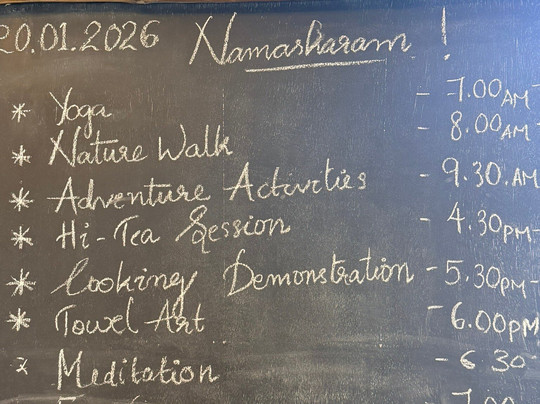 20.01.2026 Namaskaram !
* Yoga - 7.00AM
* Nature Walk - 8.00AM
* Adventure Activities - 9.30.AM
* Hi-Tea Session - 4.30PM-
* Cooking Demonstration - 5.30PM-
* Towel Art - 6.00PM
* Meditation - 6 30